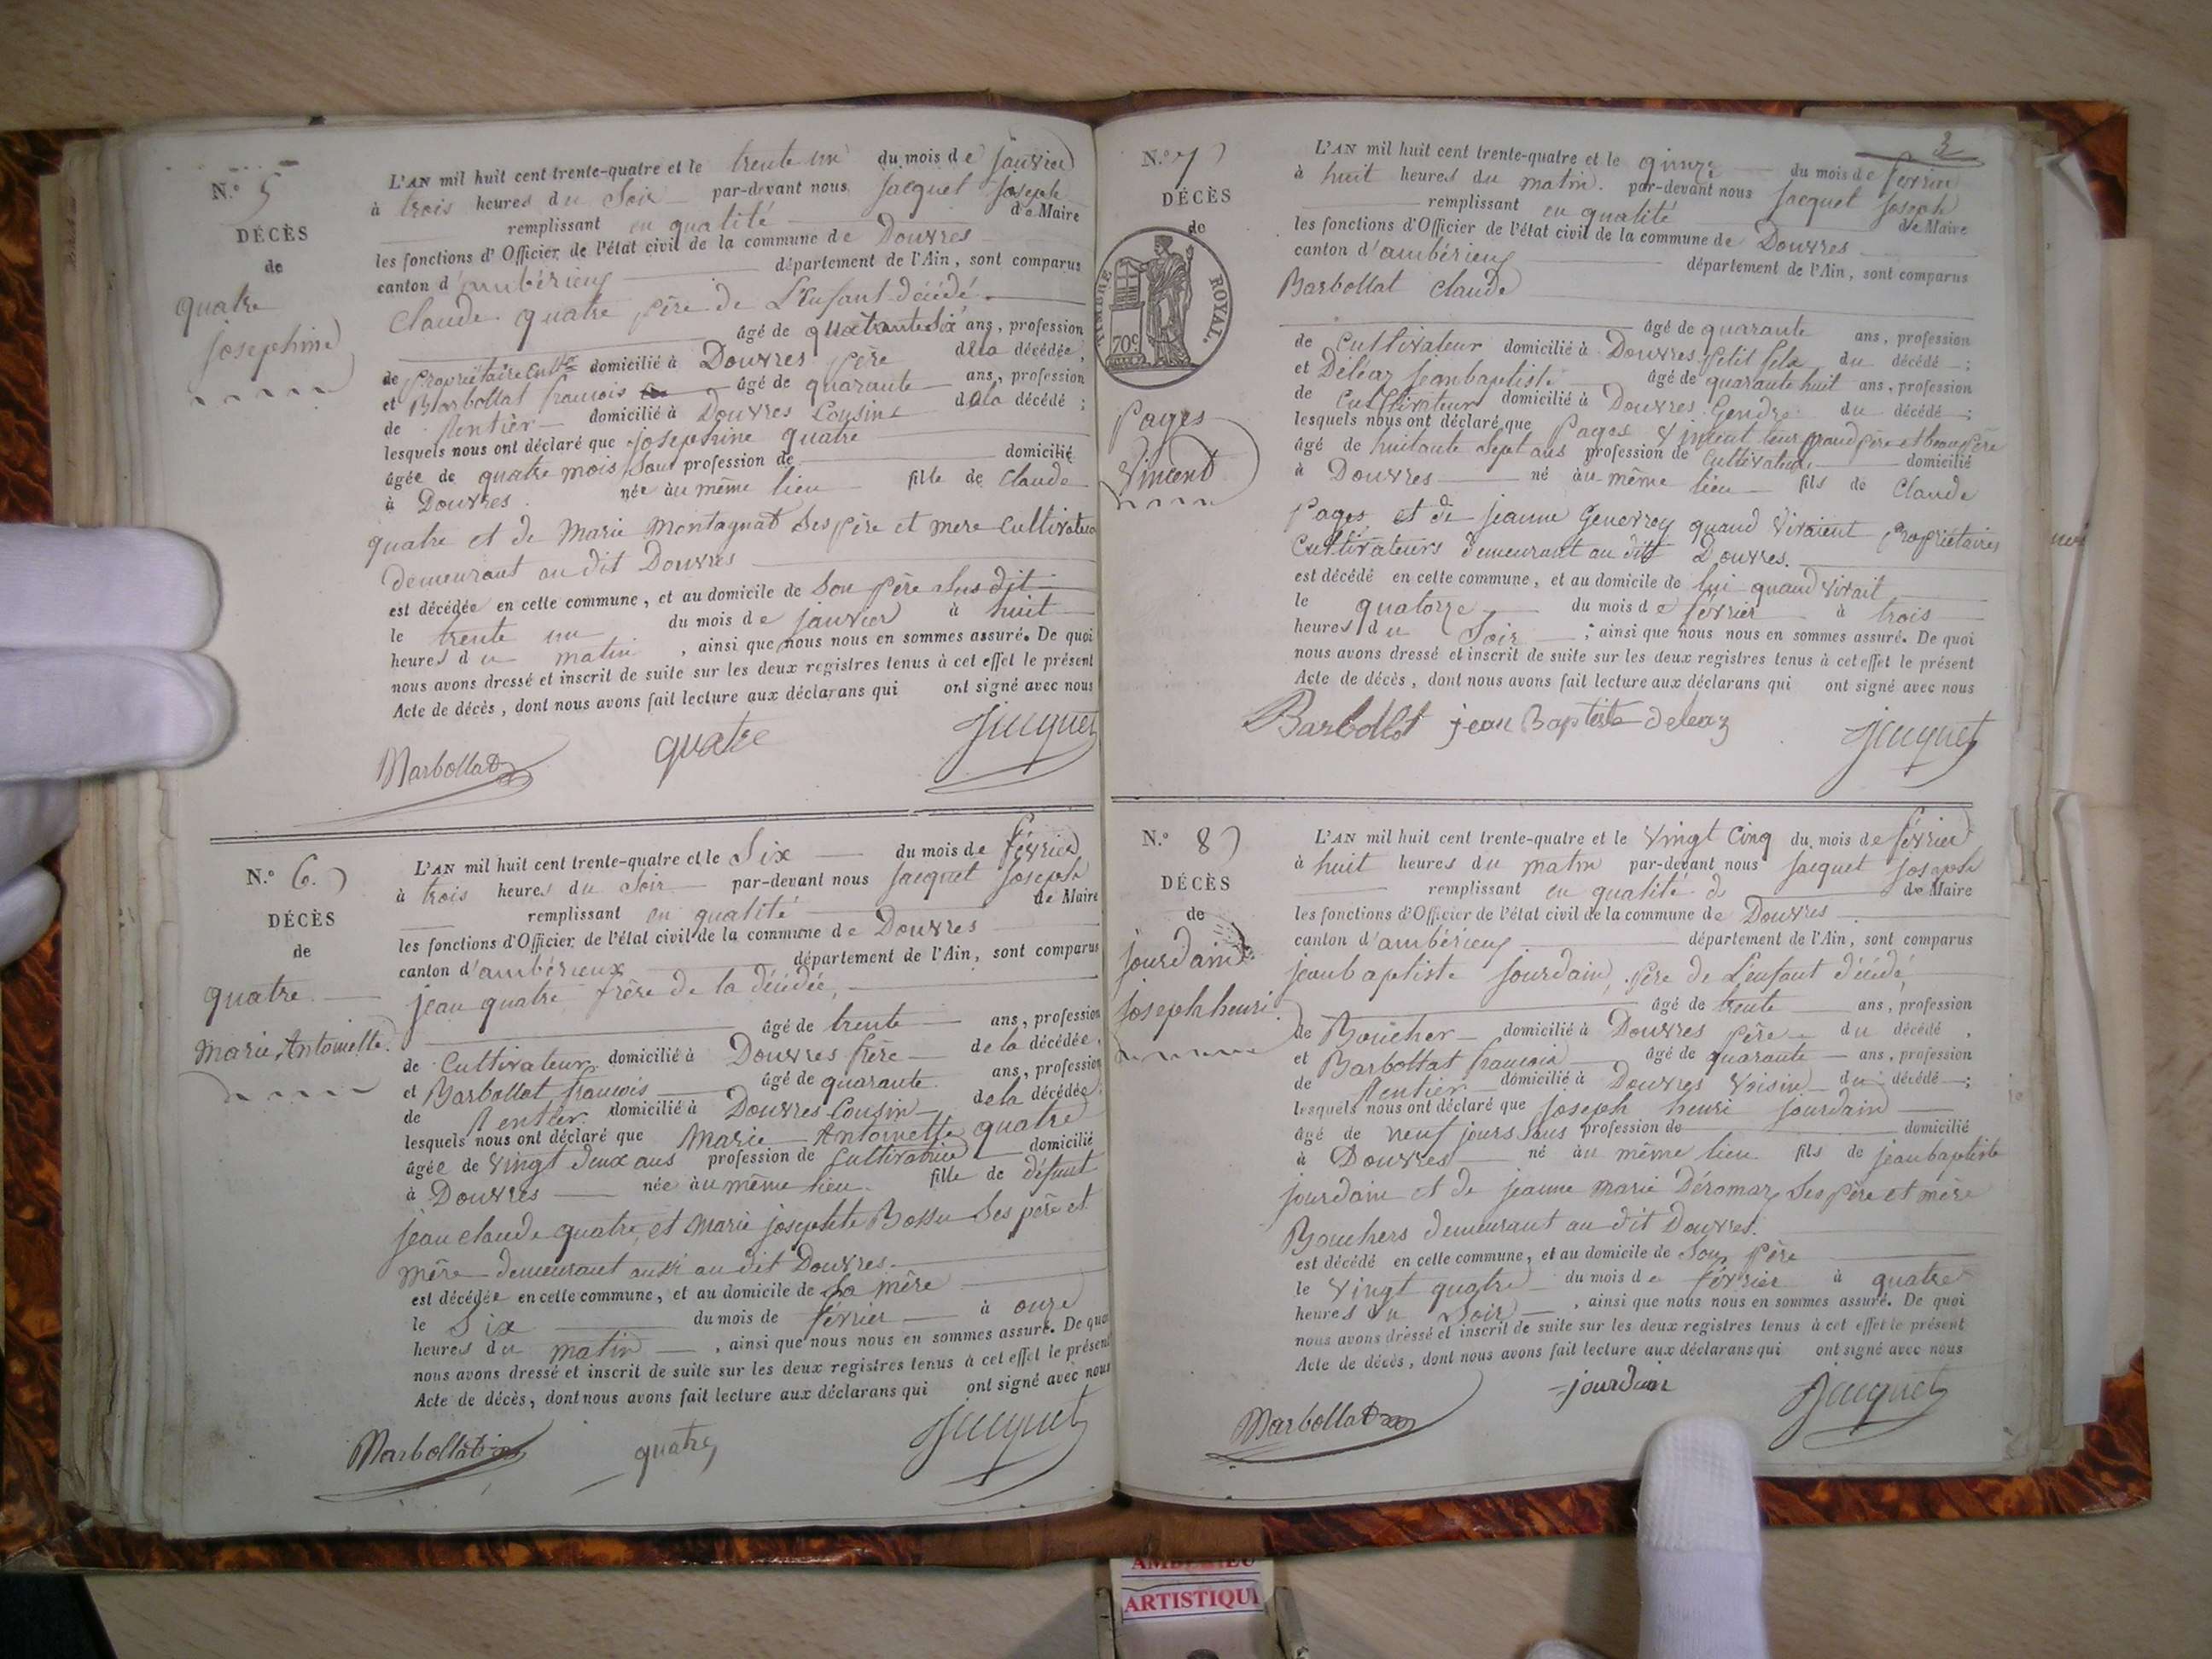 N.º 5
DÉCÈS
de
quatre
josephine
L'AN mil huit cent trente-quatre et le trente un du mois de janvier
à trois heures du Soir par-devant nous jacquet joseph
remplissant en qualité de Maire
les fonctions d'Officier de l'état civil de la commune de Douvres
canton d'ambérieux département de l'Ain, sont comparus
Claude quatre père de L'enfant décédé.
âgé de ans, profession
de propriétaire cultr domicilié à Douvres père de la décédée,
et Barbollat françois âgé de quarante ans, profession
de Rentier domicilié à Douvres Cousin de la décédé ;
lesquels nous ont déclaré que josephine quatre
âgée de quatre mois sans profession de domicilié
à Douvres née au même lieu fille de Claude
quatre et de Marie Montagnat Ses père et mere Cultivateurs
demeurant au dit Douvres
est décédée en cette commune, et au domicile de Son père Sus dit
le trente un du mois de janvier à huit
heures du matin, ainsi que nous nous en sommes assuré. De quoi
nous avons dressé et inscrit de suite sur les deux registres tenus à cet effet le présent
Acte de décès, dont nous avons fait lecture aux déclarans qui ont signé avec nous
Barbollat quatre Jacquet
N.º 6.
DÉCÈS
de
quatre
Marie, Antoinette.
L'AN mil huit cent trente-quatre et le Six du mois de février
à trois heures du Soir par-devant nous jacquet joseph
remplissant en qualité de Maire
les fonctions d'Officier de l'état civil de la commune de Douvres
canton d'ambérieux département de l'Ain, sont comparus
jean quatre frère de la décédée,
âgé de trente ans, profession
de Cultivateur domicilié à Douvres frère de la décédée,
et Barbollat françois âgé de quarante ans, profession
de Rentier domicilié à Douvres Cousin de la décédée,
lesquels nous ont déclaré que Marie Antoinette quatre
âgée de vingt deux ans profession de Cultivatrice domicilié
à Douvres née au même lieu fille de défunt
jean claude quatre, et Marie josephte Bossu Ses père et
mère demeurant aussi au dit Douvres.
est décédée en cette commune, et au domicile de Sa mère
le Six du mois de février à onze
heures du matin, ainsi que nous nous en sommes assuré. De quoi
nous avons dressé et inscrit de suite sur les deux registres tenus à cet effet le présent
Acte de décès, dont nous avons fait lecture aux déclarans qui ont signé avec nous
Barbollat quatre Jacquet
3
N.º 7
DÉCÈS
de
TIMBRE ROYAL.
70c
Pages
Vincent
L'AN mil huit cent trente-quatre et le quinze du mois de février
à huit heures du matin. par-devant nous jacquet joseph
remplissant en qualité de Maire
les fonctions d'Officier de l'état civil de la commune de Douvres
canton d'ambérieux département de l'Ain, sont comparus
Barbollat Claude
âgé de quarante ans, profession
de Cultivateur domicilié à Douvres petit fils du décédé ;
et Déléaz jean baptiste âgé de quarante huit ans, profession
de Cultivateur domicilié à Douvres Gendre du décédé ;
lesquels nous ont déclaré que Pages Vincent leur grand père et beau père
âgé de huitante sept ans profession de Cultivateur domicilié
à Douvres né au même lieu fils de Claude
Pages et de jeanne Genevroy quand vivaient propriétaires
Cultivateurs demeurant au dit Douvres.
est décédé en cette commune, et au domicile de lui quand vivait
le quatorze du mois de février à trois
heures du Soir ; ainsi que nous nous en sommes assuré. De quoi
nous avons dressé et inscrit de suite sur les deux registres tenus à cet effet le présent
Acte de décès, dont nous avons fait lecture aux déclarans qui ont signé avec nous
Barbollat jean Baptiste deleaz Jacquet
N.º 8
DÉCÈS
de
jourdain
joseph henri.
L'AN mil huit cent trente-quatre et le vingt cinq du mois de février
à huit heures du matin par-devant nous jacquet joseph
remplissant en qualité de de Maire
les fonctions d'Officier de l'état civil de la commune de Douvres
canton d'ambérieux département de l'Ain, sont comparus
jean baptiste jourdain, père de L'enfant décédé
âgé de trente ans, profession
de Boucher domicilié à Douvres père du décédé,
et Barbollat françois âgé de quarante ans, profession
de Rentier domicilié à Douvres voisin du décédé ;
lesquels nous ont déclaré que joseph henri jourdain
âgé de neuf jours sans profession de domicilié
à Douvres né au même lieu fils de jean baptiste
jourdain et de jeanne Marie Déromaz Ses père et mère
Bouchers demeurant au dit Douvres.
est décédé en cette commune, et au domicile de Son père
le vingt quatre du mois de février à quatre
heures du Soir, ainsi que nous nous en sommes assuré. De quoi
nous avons dressé et inscrit de suite sur les deux registres tenus à cet effet le présent
Acte de décès, dont nous avons fait lecture aux déclarans qui ont signé avec nous
Barbollat jourdain Jacquet
ARTISTIQU